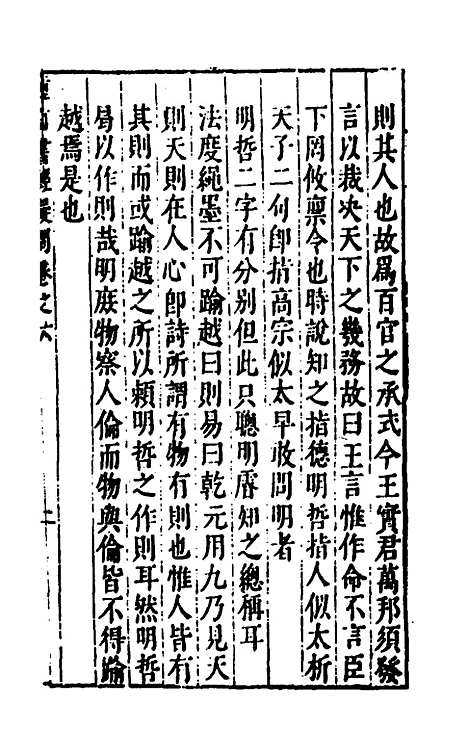 則其人也故爲百官之承式今王實君萬邦須發
言以裁决天下之幾務故曰王言惟作命不言臣
下罔攸禀令也時說知之指德明哲指人似太析
天子二句即指高宗似太早收問明者
明哲二字有分别但此只聰明睿知之總稱耳
法度繩墨不可踰越曰則易曰乾元用九乃見天
則天則在人心即詩所謂有物有則也惟人皆有
其則而或踰越之所以頼明哲之作則耳然明哲
曷以作則哉明庶物察人倫而物與倫皆不得踰
越焉是也
書經 卷之六
二